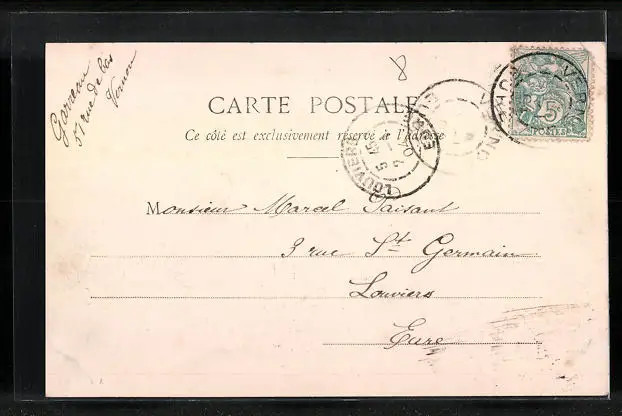 Garreau
51 rue de
Vernon
8
CARTE POSTALE
Ce côté est exclusivement réservé à l'adresse
VERNON
5
POSTES
LOUVIERS
EURE
Monsieur Marcel Taisant
3 rue St Germain
Louviers
Eure